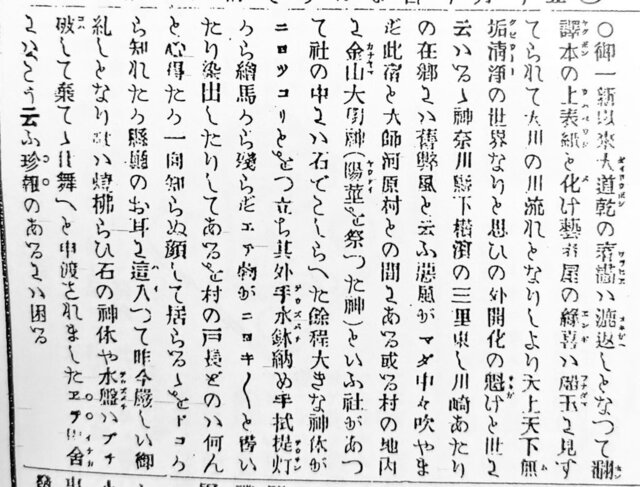 ○御一新以來大道乾の春畵ハ漉返しとなつて翻
譯本の上表紙と化け藝者屋の縁喜ハ玉と見す
てられて大川の川流れとなりしより天上天下無
垢清淨の世界なりと思ひの外開化の魁けと世に
云ハるゝ神奈川縣下横濱の三里東し川崎あたり
の在郷にハ舊弊風と云ふ惡風がマダ中々吹やま
ず此宿と大師河原村との間にある或る村の地内
に金山大明神(陽莖を祭つた神)といふ社があつ
て社の中にハ石でこしらへた餘程大きな神体が
ニヨツコリとをつ立ち其外手水鉢納め手拭提灯
から繪馬から殘らずエテ物がニヨキ〱と畫い
たり染出したりしてあるを村の戸長どのハ何ん
と心得たか一向知らぬ顔して居らるゝをドコか
ら知れたか縣廳のお耳に這入つて昨今嚴しい御
糺しとなり社ハ燒拂らひ石の神体や水盤ハブチ
破して棄てゝ仕舞へと申渡されました田舍
にハこう云ふ珍報のあるにハ困る